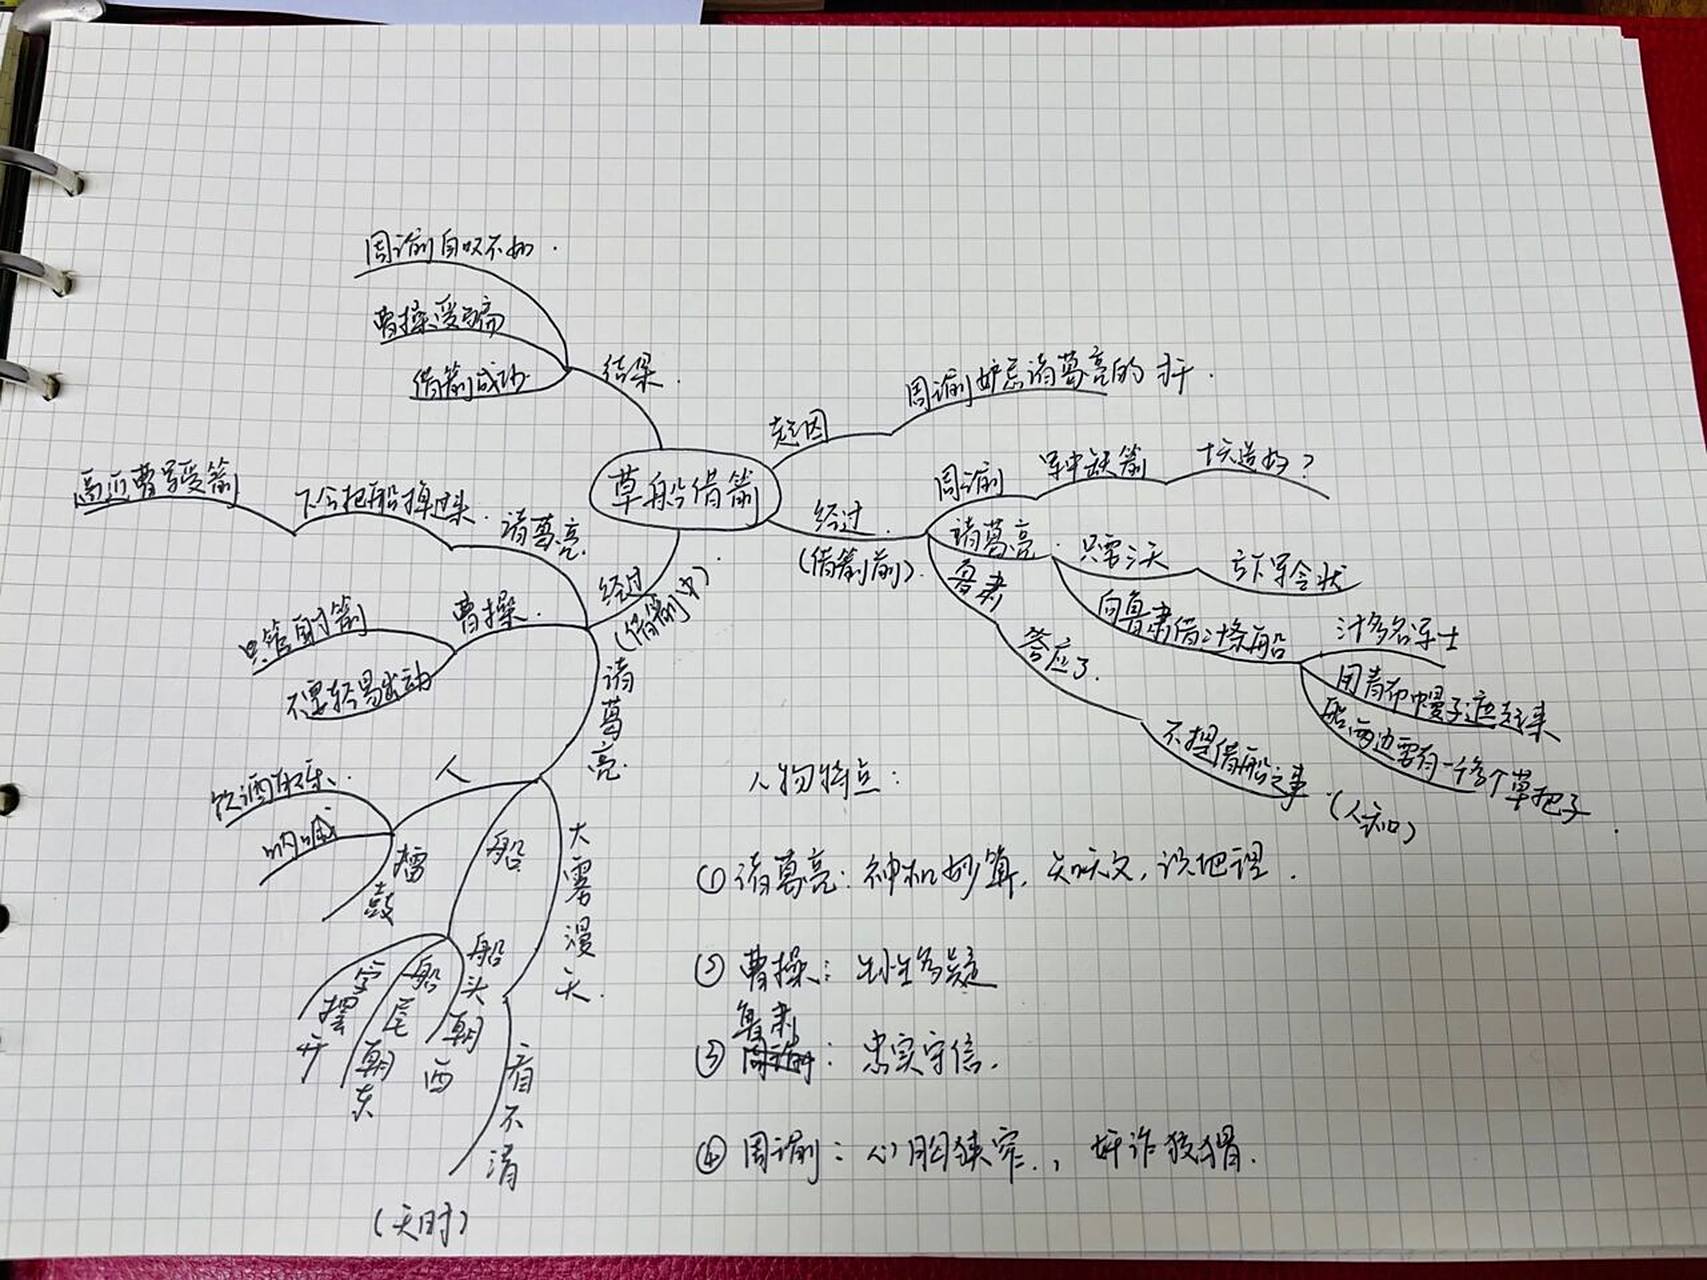 草船借箭
起因
周瑜妒忌诸葛亮的才干.
经过
(借箭前)
周瑜
军中缺箭
十天造好?
诸葛亮
只需三天
立下军令状
向鲁肃借二十条船
三十多名军士
用青布幔子遮起来
船两边要有一千多个草把子
鲁肃
答应了.
不提借船之事
(人和)
经过
(借箭中)
诸葛亮
人
饮酒取乐.
呐喊
擂鼓
船
船头朝西
船尾朝东
一字摆开
大雾漫天.
看不清
(天时)
曹操.
只管射箭
不要轻易出动
诸葛亮.
下令把船掉过来.
逼近曹军受箭
结果.
借箭成功
曹操受骗
周瑜自叹不如.
人物特点:
①诸葛亮:神机妙算,知天文,识地理.
②曹操:生性多疑
③鲁肃:忠实守信.
④周瑜:心胸狭窄,奸诈狡猾.